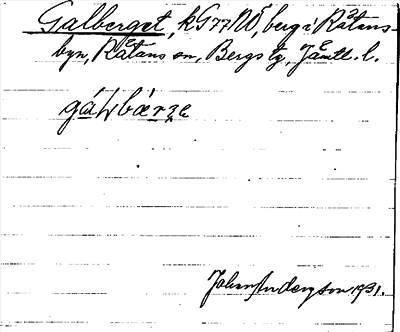 Galberget, k G 77 NO, berg i Rätans-
byn, Rätans sn, Bergs tg, Jämtl. l.
Johan Anderzson 1931.